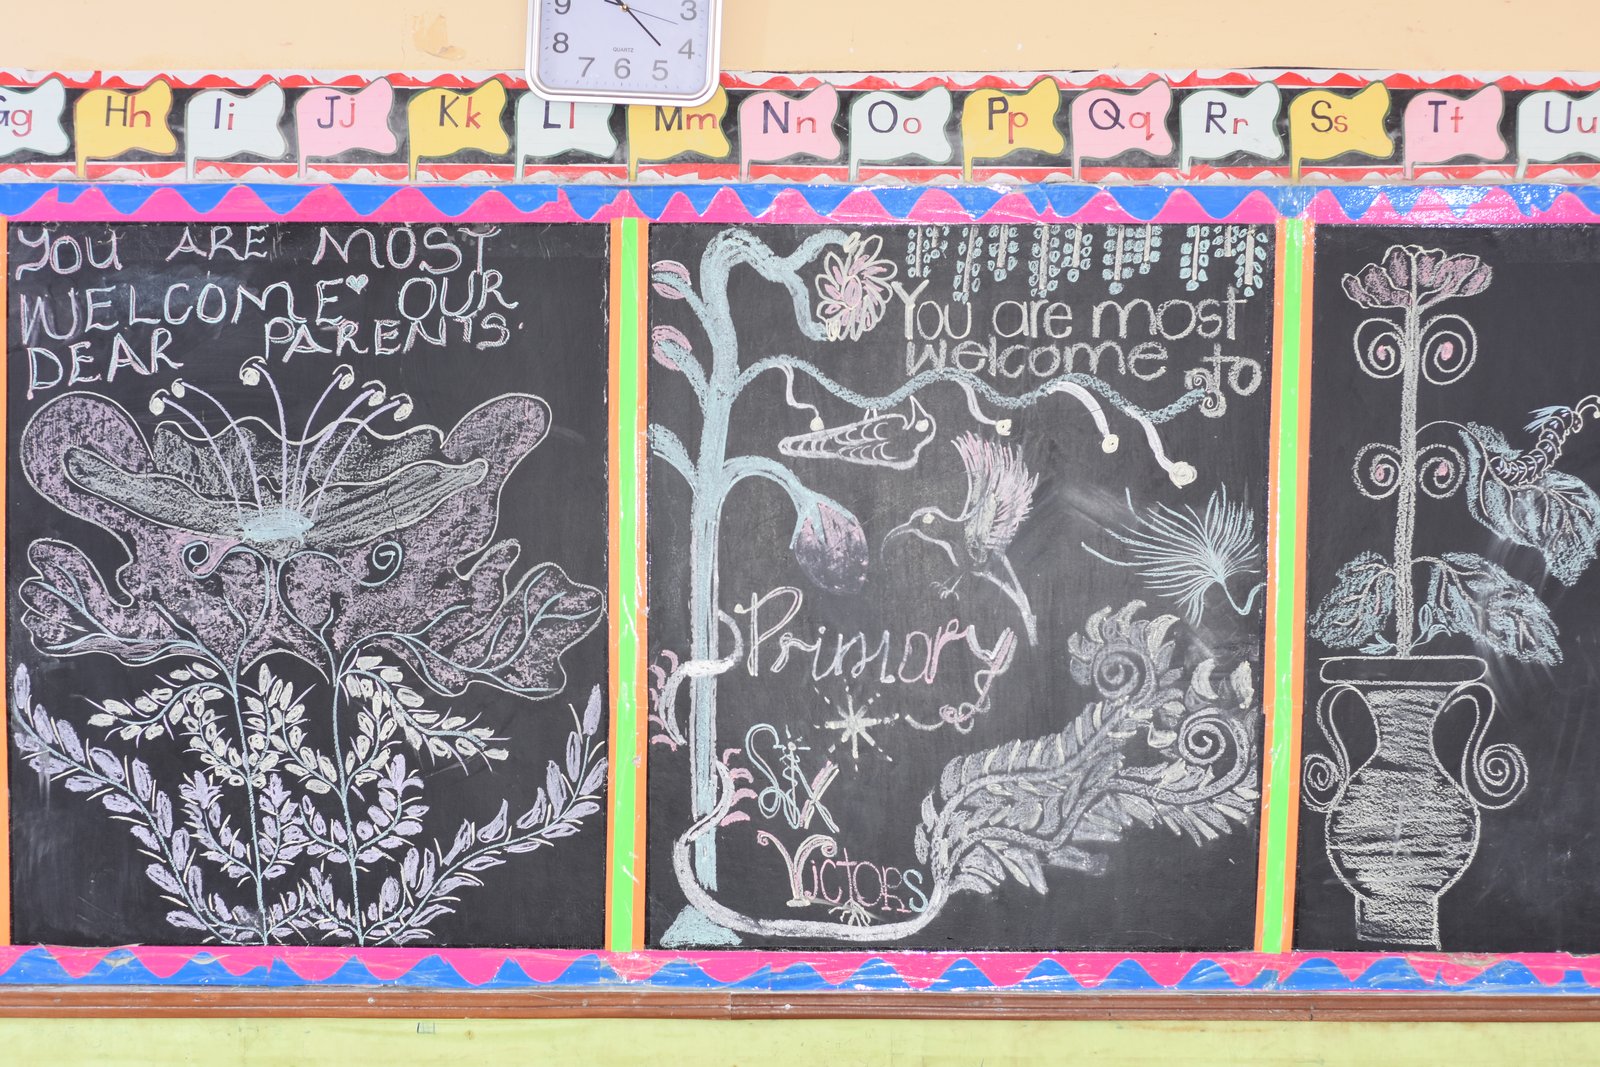 9 3
8 4
7 6 5
QUARTZ
Gg Hh Ii Jj Kk Ll Mm Nn Oo Pp Qq Rr Ss Tt Uu
YOU ARE MOST
WELCOME OUR
DEAR PARENTS.
You are most
welcome to
Primary
Six
Victors